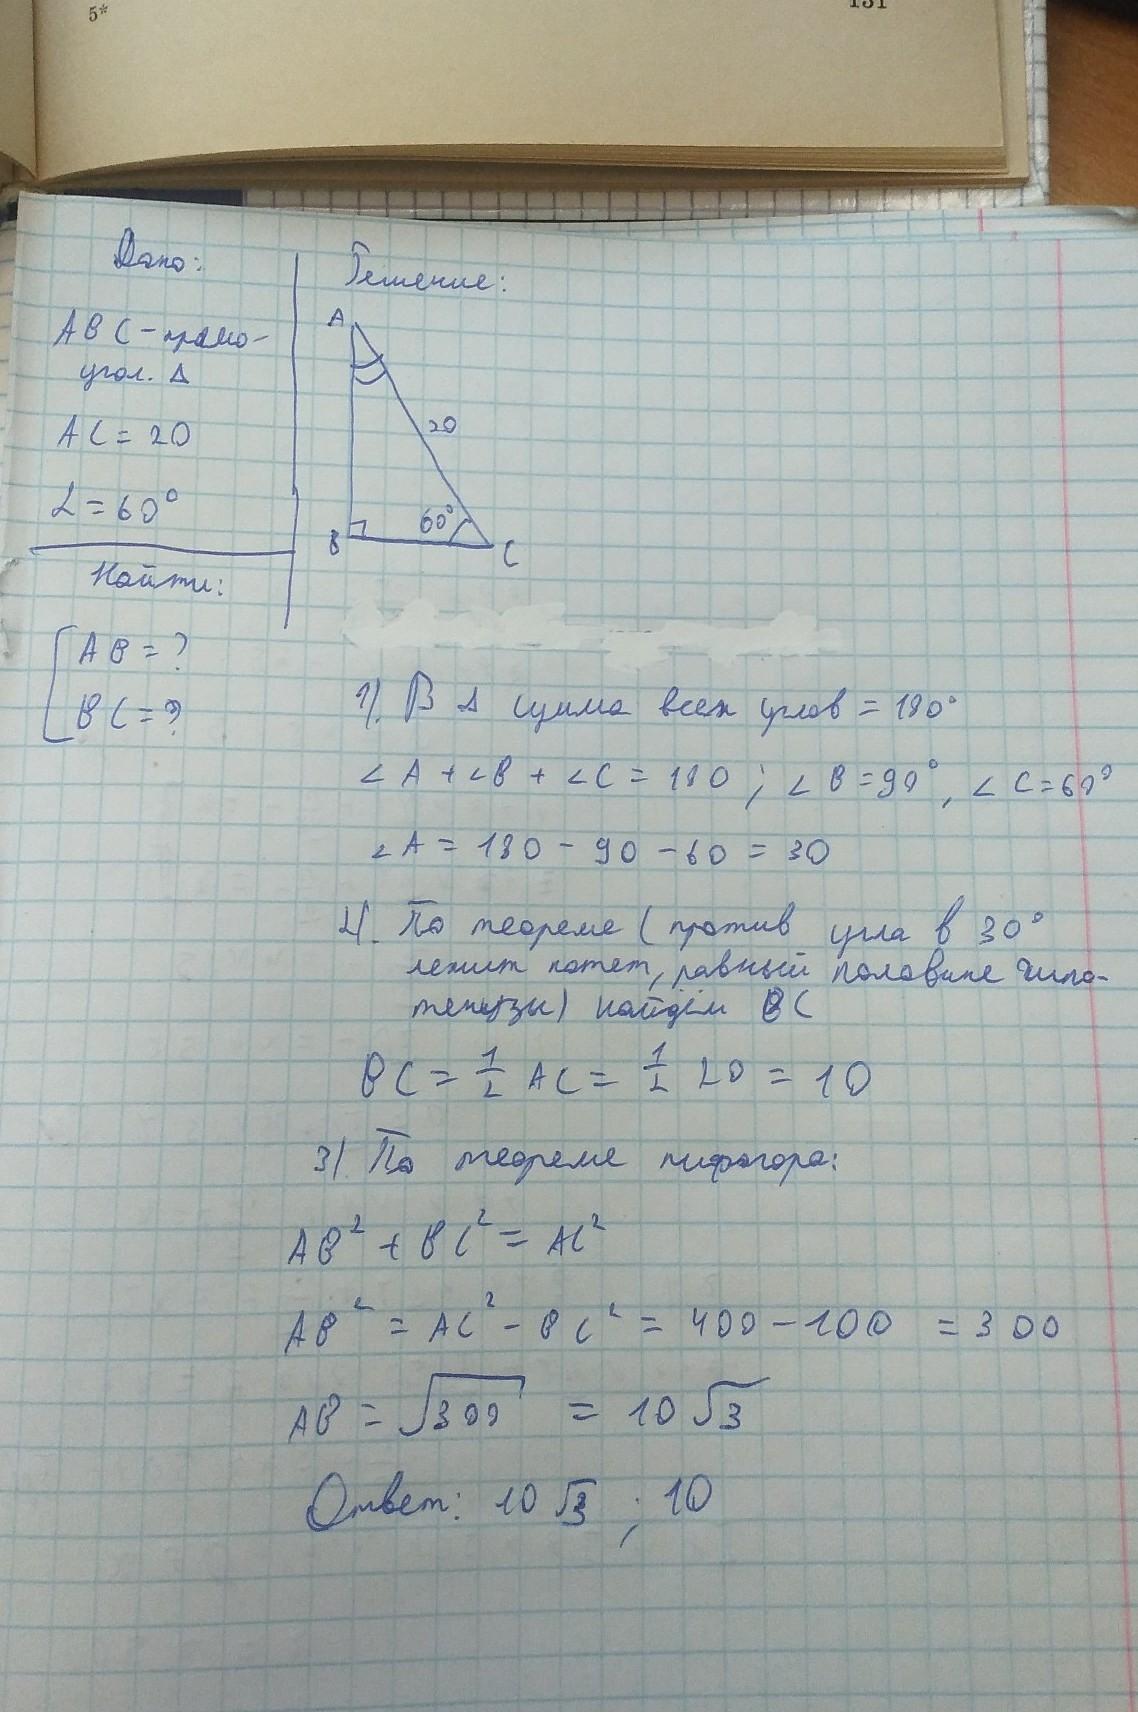 5*
131
Дано:
ABC - прямо-
угол. Δ
AC = 20
L = 60°
Найти:
AB = ?
BC = ?
Решение:
A
20
60°
B
C
1). В Δ сумма всех углов = 180°
∠A + ∠B + ∠C = 180 ; ∠B = 90°, ∠C = 60°
∠A = 180 - 90 - 60 = 30
2). По теореме (против угла в 30°
лежит катет, равный половине гипо-
тенузы) найдём BC
BC = 1/2 AC = 1/2 20 = 10
3) По теореме пифагора:
AB² + BC² = AC²
AB² = AC² - BC² = 400 - 100 = 300
AB = √300 = 10√3
Ответ: 10√3 ; 10